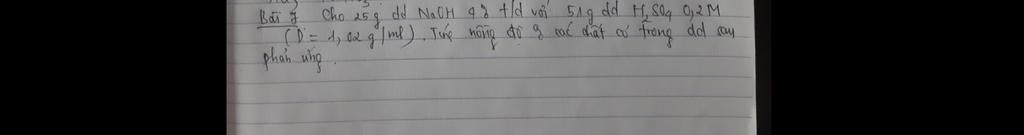 Bài 7 Cho 25g dd NaOH 4% t/d với 51g dd H₂SO₄ 0,2M
(D = 1,02 g/ml). Tính nồng độ % các chất có trong dd sau
phản ứng.